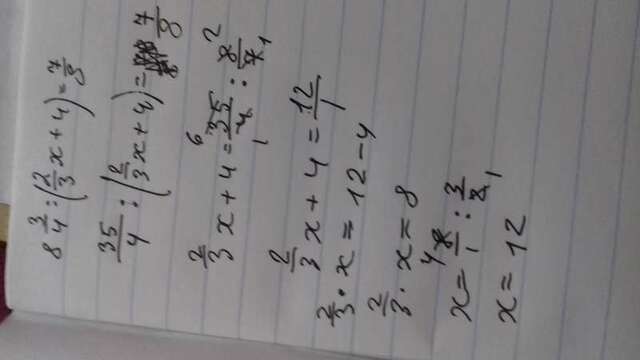 8 3/4 : (2/3 x + 4) = 7/8
35/4 : (2/3 x + 4) = 7/8
2/3 x + 4 = 35/4 : 8/7 6 1 2 1
2/3 x + 4 = 12/1
2/3 · x = 12 - 4
2/3 · x = 8
x = 8/1 : 3/2 4 1
x = 12